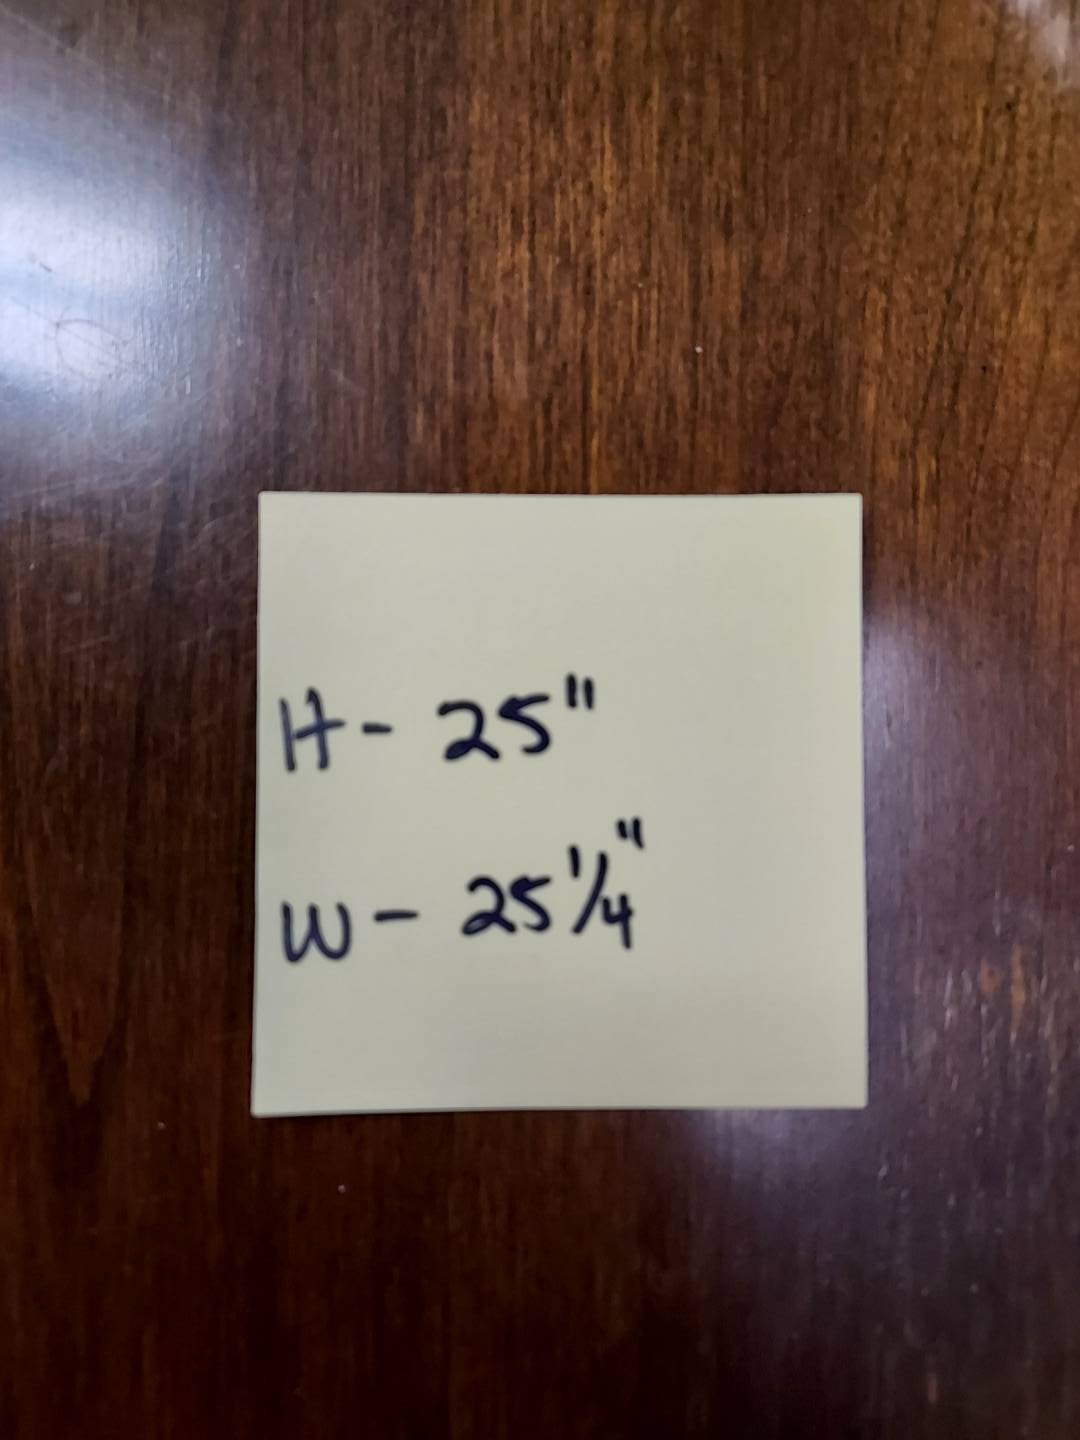 H- 25"
W- 25 1/4"